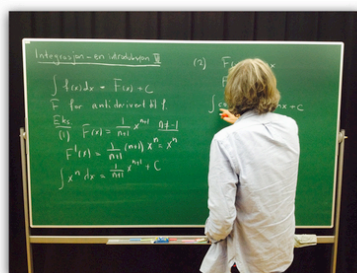 Integrasjon – en introduksjon
∫ f(x)dx = F(x) + C
F er antiderivert til f.
Eks
(1) F(x) = 1/(n+1) x^(n+1) n≠-1
F'(x) = 1/(n+1) (n+1) x^n = x^n
∫ x^n dx = 1/(n+1) x^(n+1) + C
(2) F(x
∫ x + C